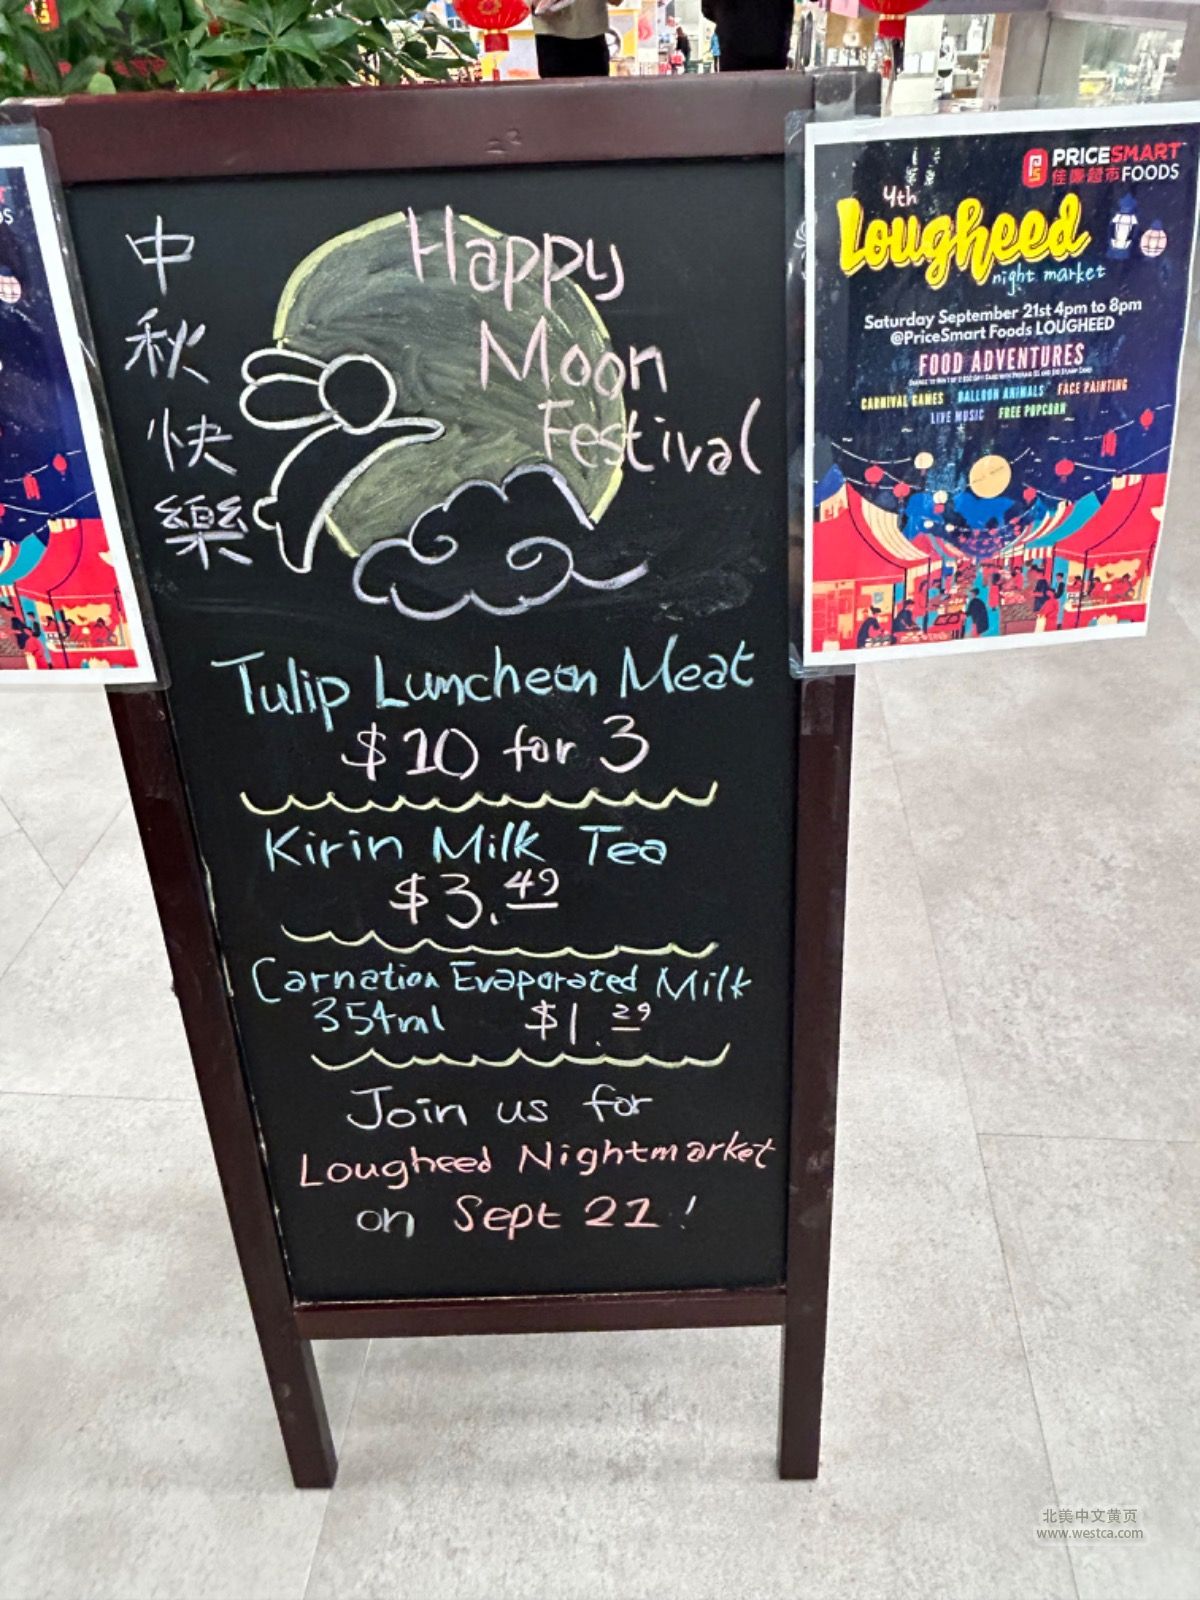 中秋快樂
Happy
Moon
Festival
Tulip Luncheon Meat
$10 for 3
Kirin Milk Tea
$3.49
Carnation Evaporated Milk
354ml $1.29
Join us for
Lougheed Nightmarket
on Sept 21!
PRICESMART
佳廉超市FOODS
4th
Lougheed
night market
Saturday September 21st 4pm to 8pm
@PriceSmart Foods LOUGHEED
FOOD ADVENTURES
CARNIVAL GAMES BALLOON ANIMALS FACE PAINTING
LIVE MUSIC FREE POPCORN
北美中文黄页
www.westca.com